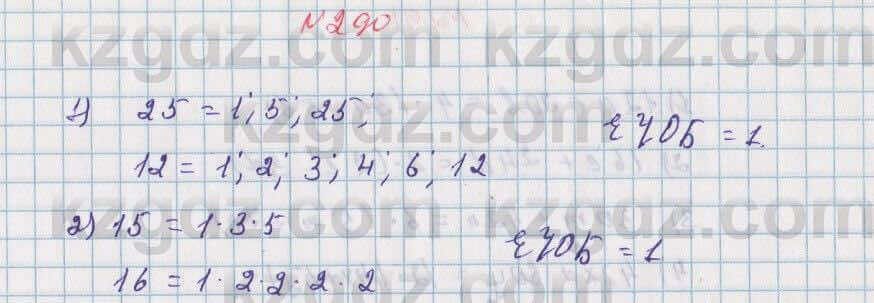 №290
kzgdz.com kzgdz.com
1) 25 = 1; 5; 25;
12 = 1; 2; 3; 4; 6; 12
ЕҮОБ = 1.
kzgdz.com kzgdz.com
2) 15 = 1·3·5
16 = 1·2·2·2·2
ЕҮОБ = 1
kzgdz.com kzgdz.com